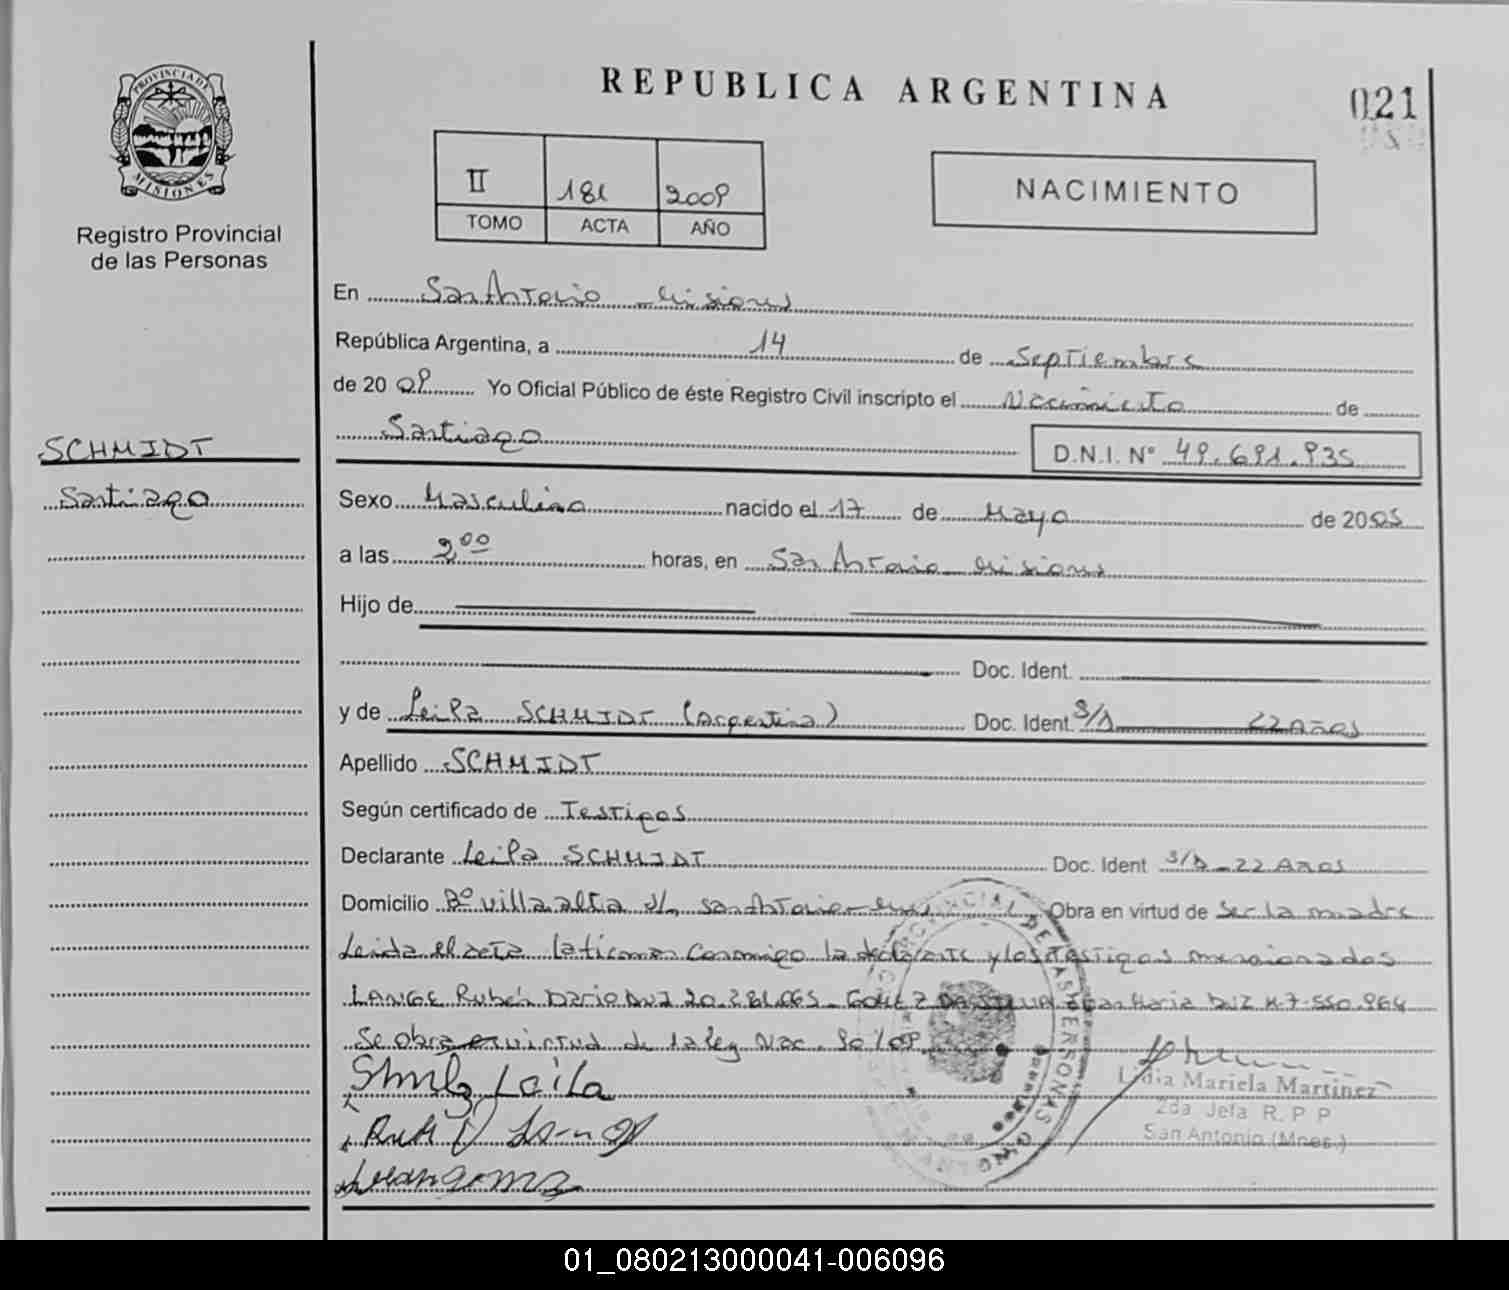 REPUBLICA ARGENTINA
021
PROVINCIA DE
MISIONES
Registro Provincial
de las Personas
II 181 2009
TOMO ACTA AÑO
NACIMIENTO
En San Antonio Misiones
República Argentina, a 14 de Septiembre
de 20 09 Yo Oficial Público de éste Registro Civil inscripto el Nacimiento de
Santiago
D.N.I. N° 49.691.935
SCHMIDT
Santiago
Sexo Masculino nacido el 17 de Mayo de 2005
a las 2 00 horas, en San Antonio Misiones
Hijo de
Doc. Ident.
y de Leila SCHMIDT (Argentina) Doc. Ident. S/D 22 Años
Apellido SCHMIDT
Según certificado de Testigos
Declarante Leila SCHMIDT Doc. Ident S/D - 22 Años
Domicilio Bº villa alta S/n San Antonio Obra en virtud de Ser la madre
Leida el acta la firman conmigo la declarante y los testigos mencionados
LANGE Rubén Dario DNI GOMEZ DA SILVA Juan Maria DNI
Se obra en virtud de la ley Nac.
Leila
Lidia Mariela Martinez
2da Jefa R. P. P
San Antonio (Mnes.)
01_080213000041-006096